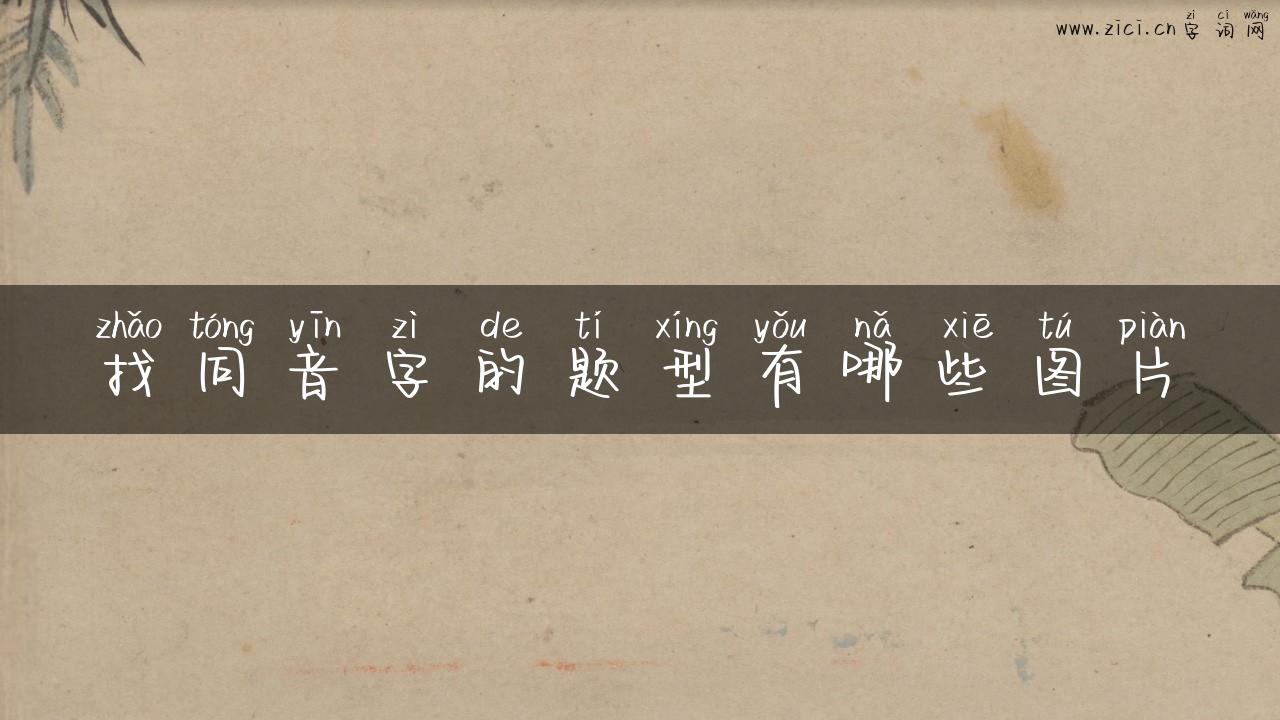 zì cí wǎng
www.zici.cn 字词网
zhǎo tóng yīn zì de tí xíng yǒu nǎ xiē tú piàn
找同音字的题型有哪些图片